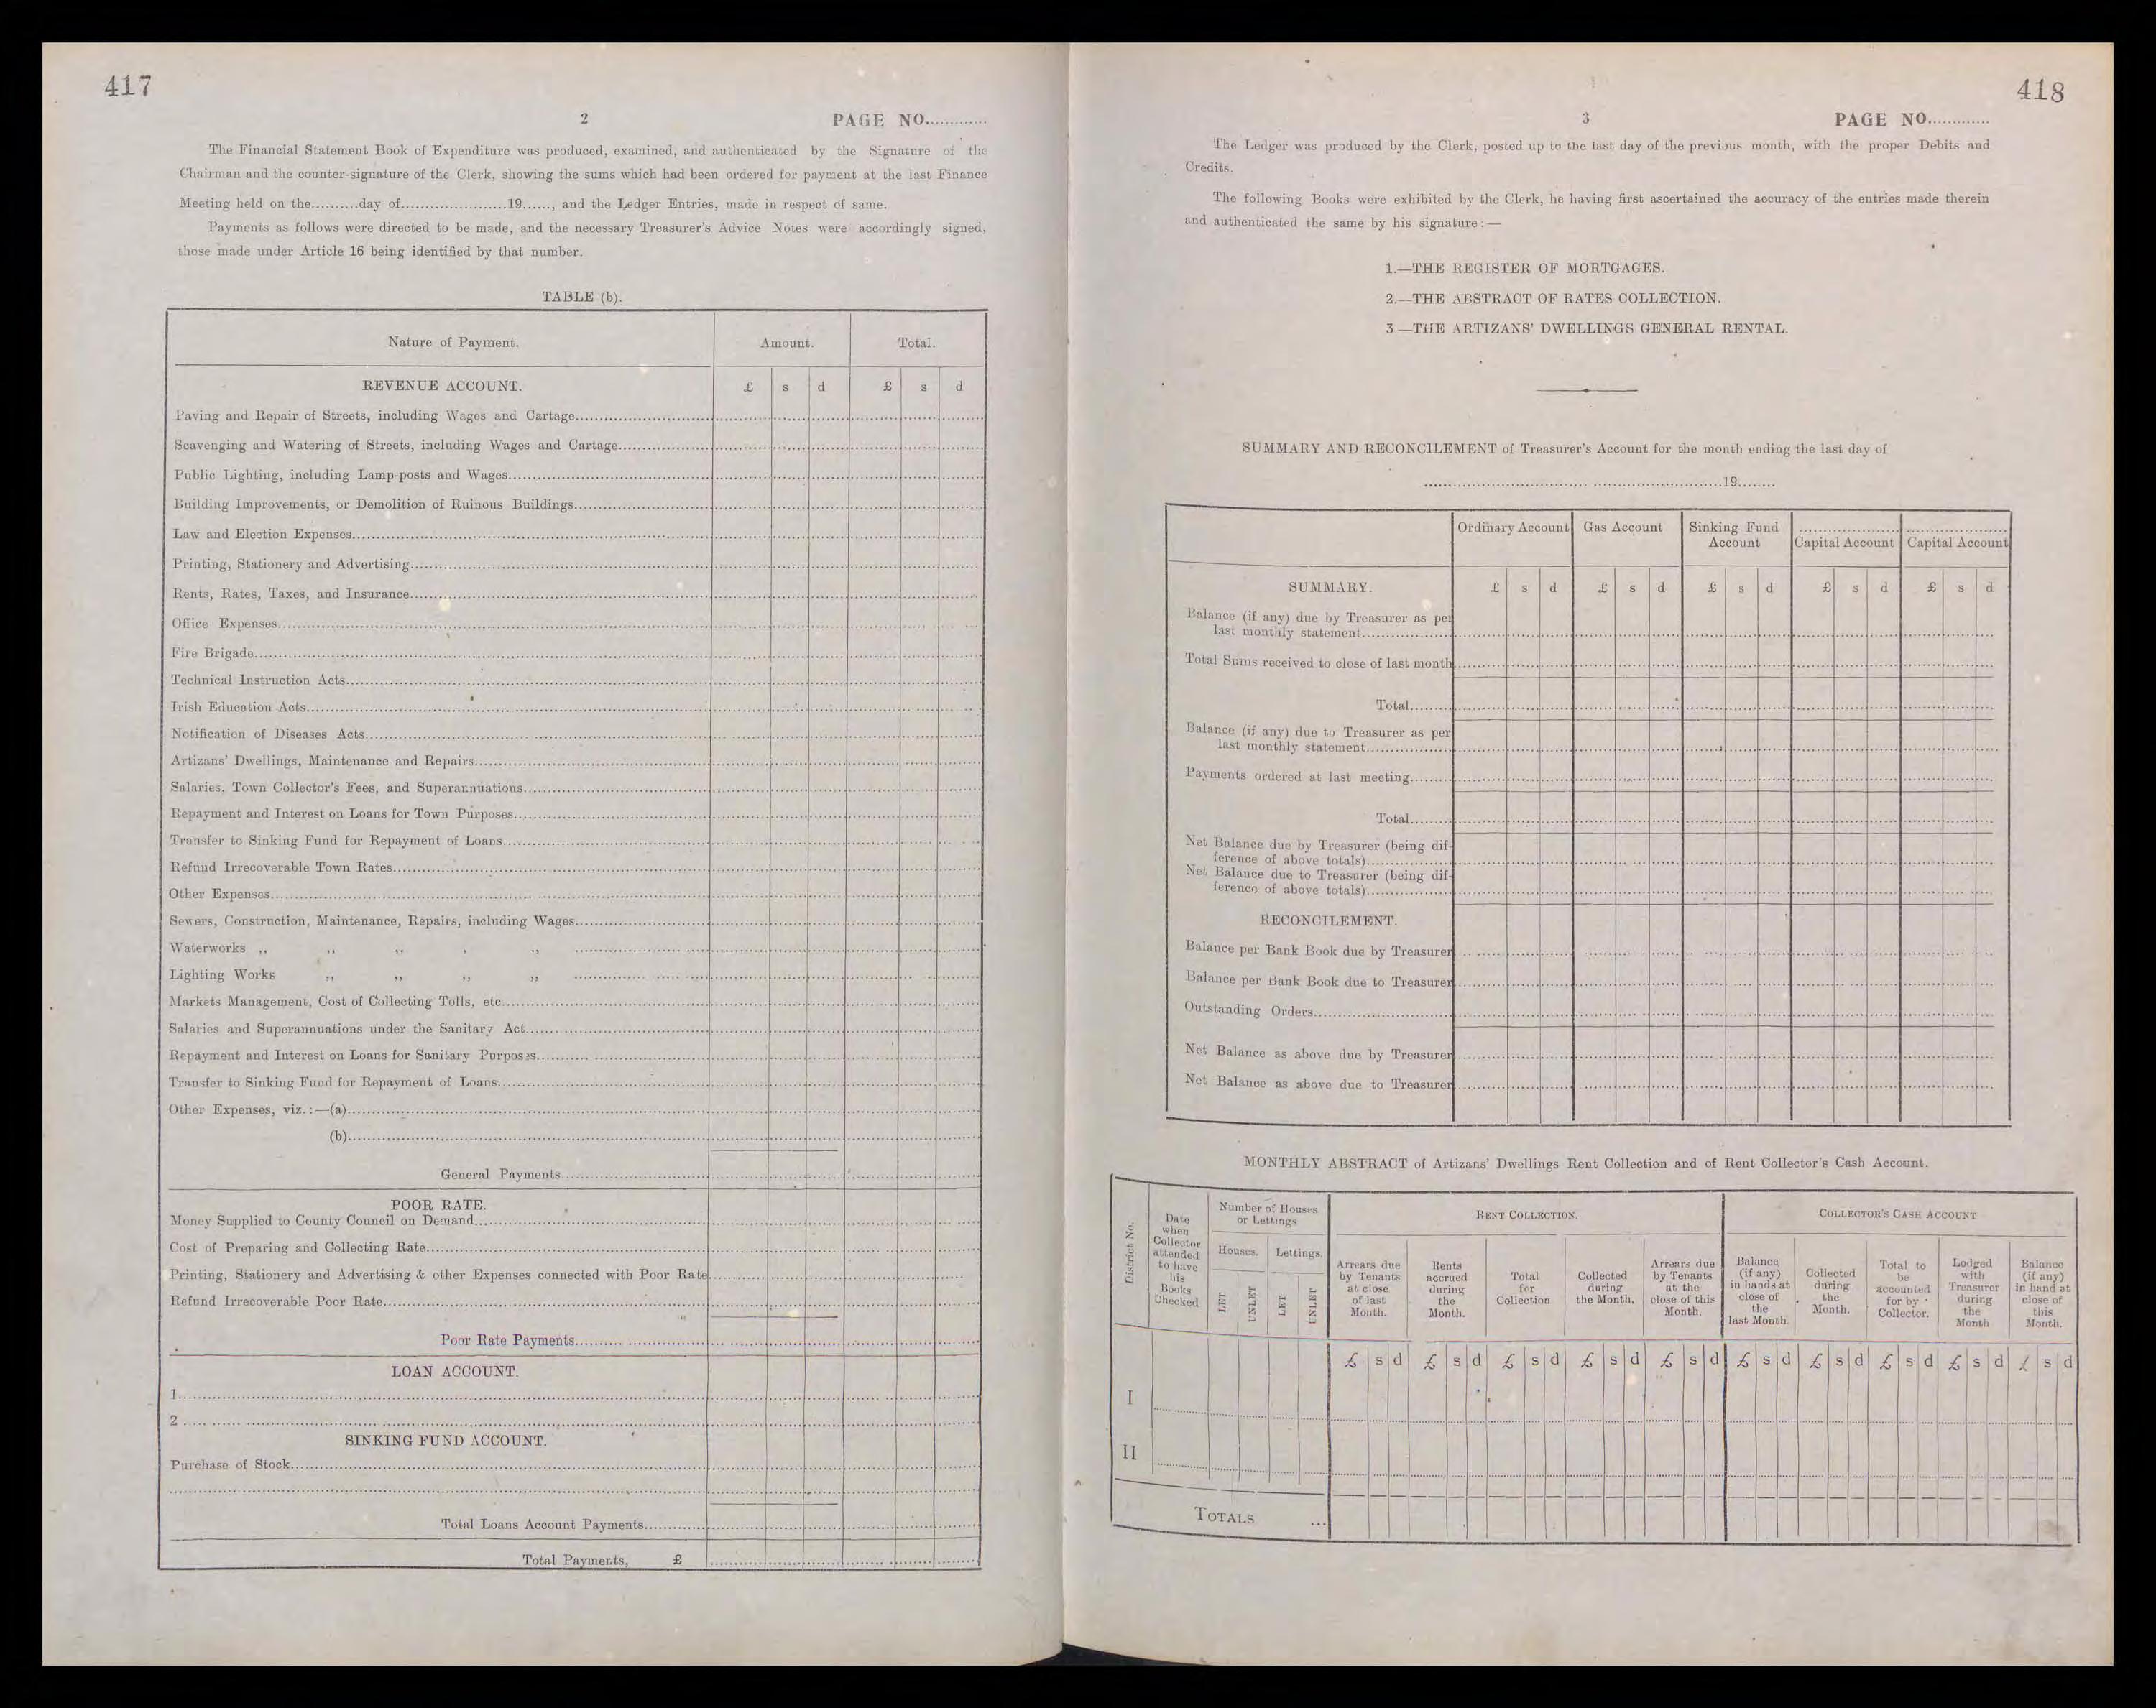 417
2
PAGE NO.............
The Financial Statement Book of Expenditure was produced, examined, and authenticated by the Signature of the
Chairman and the counter-signature of the Clerk, showing the sums which had been ordered for payment at the last Finance
Meeting held on the..........day of......................19......, and the Ledger Entries, made in respect of same.
Payments as follows were directed to be made, and the necessary Treasurer's Advice Notes were accordingly signed,
those made under Article 16 being identified by that number.
TABLE (b).
Nature of Payment. Amount. Total.
REVENUE ACCOUNT. £ s d £ s d
Paving and Repair of Streets, including Wages and Cartage
Scavenging and Watering of Streets, including Wages and Cartage
Public Lighting, including Lamp-posts and Wages
Building Improvements, or Demolition of Ruinous Buildings
Law and Election Expenses
Printing, Stationery and Advertising
Rents, Rates, Taxes, and Insurance
Office Expenses
Fire Brigade
Technical Instruction Acts
Irish Education Acts
Notification of Diseases Acts
Artizans' Dwellings, Maintenance and Repairs
Salaries, Town Collector's Fees, and Superannuations
Repayment and Interest on Loans for Town Purposes
Transfer to Sinking Fund for Repayment of Loans
Refund Irrecoverable Town Rates
Other Expenses
Sewers, Construction, Maintenance, Repairs, including Wages
Waterworks ,, ,, ,, , ,,
Lighting Works ,, ,, ,, ,,
Markets Management, Cost of Collecting Tolls, etc
Salaries and Superannuations under the Sanitary Act
Repayment and Interest on Loans for Sanitary Purposes
Transfer to Sinking Fund for Repayment of Loans
Other Expenses, viz. :—(a)
(b)
General Payments
POOR RATE.
Money Supplied to County Council on Demand
Cost of Preparing and Collecting Rate
Printing, Stationery and Advertising & other Expenses connected with Poor Rate
Refund Irrecoverable Poor Rate
Poor Rate Payments
LOAN ACCOUNT.
1
2
SINKING FUND ACCOUNT.
Purchase of Stock
Total Loans Account Payments
Total Payments, £
418
3
PAGE NO.............
The Ledger was produced by the Clerk, posted up to the last day of the previous month, with the proper Debits and
Credits.
The following Books were exhibited by the Clerk, he having first ascertained the accuracy of the entries made therein
and authenticated the same by his signature :—
1.—THE REGISTER OF MORTGAGES.
2.—THE ABSTRACT OF RATES COLLECTION.
3.—THE ARTIZANS' DWELLINGS GENERAL RENTAL.
SUMMARY AND RECONCILEMENT of Treasurer's Account for the month ending the last day of
19........
Ordinary Account Gas Account Sinking Fund
Account
Capital Account
Capital Account
SUMMARY. £ s d £ s d £ s d £ s d £ s d
Balance (if any) due by Treasurer as per
last monthly statement
Total Sums received to close of last month
Total
Balance (if any) due to Treasurer as per
last monthly statement
Payments ordered at last meeting
Total
Net Balance due by Treasurer (being dif-
ference of above totals)
Net Balance due to Treasurer (being dif-
ference of above totals)
RECONCILEMENT.
Balance per Bank Book due by Treasurer
Balance per Bank Book due to Treasurer
Outstanding Orders
Net Balance as above due by Treasurer
Net Balance as above due to Treasurer
MONTHLY ABSTRACT of Artizans' Dwellings Rent Collection and of Rent Collector's Cash Account.
District No.
Date
when
Collector
attended
to have
his
Books
Checked
Number of Houses
or Lettings
Houses. Lettings.
LET UNLET LET UNLET
RENT COLLECTION.
Arrears due
by Tenants
at close
of last
Month.
Rents
accrued
during
the
Month.
Total
for
Collection
Collected
during
the Month.
Arrears due
by Tenants
at the
close of this
Month.
COLLECTOR'S CASH ACCOUNT
Balance
(if any)
in hands at
close of
the
last Month.
Collected
during
the
Month.
Total to
be
accounted
for by
Collector.
Lodged
with
Treasurer
during
the
Month
Balance
(if any)
in hand at
close of
this
Month.
£ s d £ s d £ s d £ s d £ s d £ s d £ s d £ s d £ s d £ s d
I
II
TOTALS ...